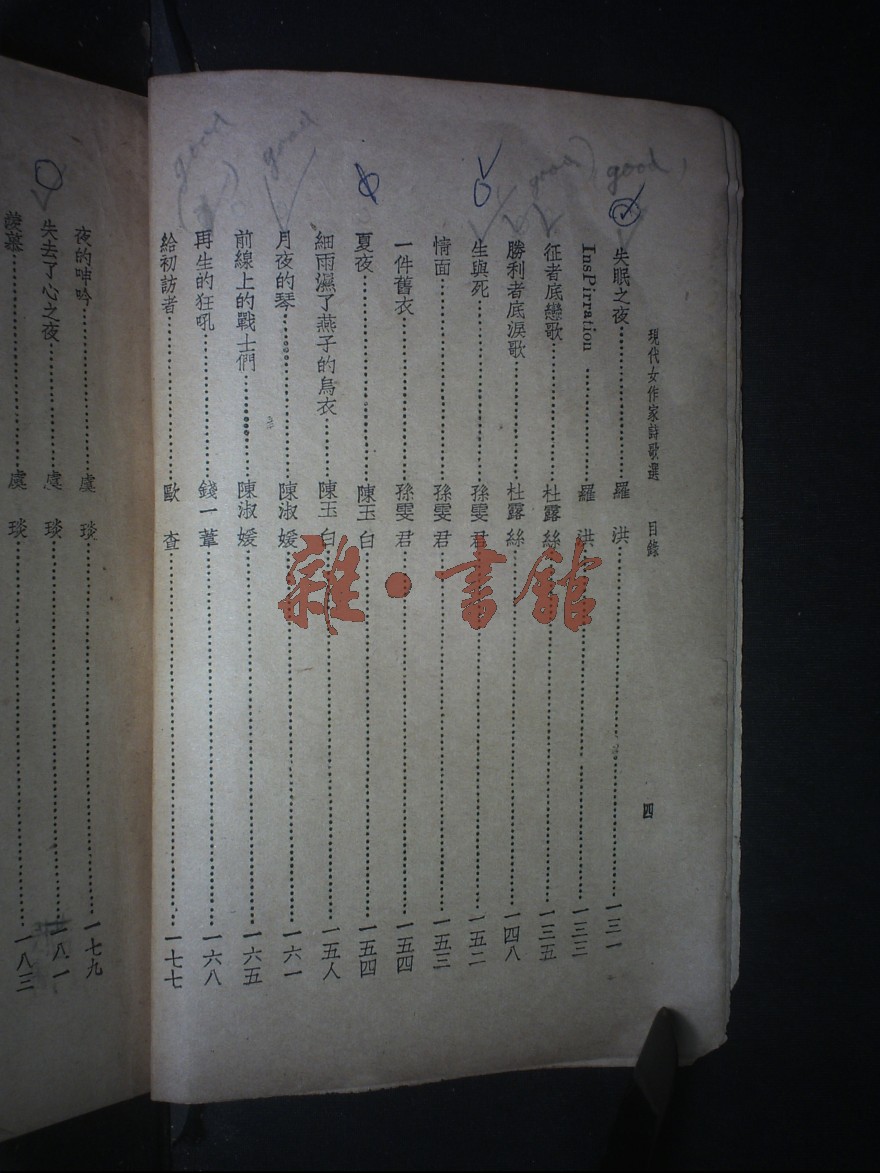 現代女作家詩歌選 目錄 四
失眠之夜……羅洪……一三一
InsPirration……羅洪……一三三
征者底戀歌……杜露絲……一三五
勝利者底淚歌……杜露絲……一四八
生與死……孫雯君……一五二
情面……孫雯君……一五三
一件舊衣……孫雯君……一五四
夏夜……陳玉白……一五四
細雨濕了燕子的烏衣……陳玉白……一五人
月夜的琴……陳淑媛……一六一
前線上的戰士們……陳淑媛……一六五
再生的狂吼……錢一葦……一六八
給初訪者……歐查……一七七
夜的呻吟……虞琰……一七九
失去了心之夜……虞琰……一八一
……虞琰……一八三
good
good
good
good
雜·書館